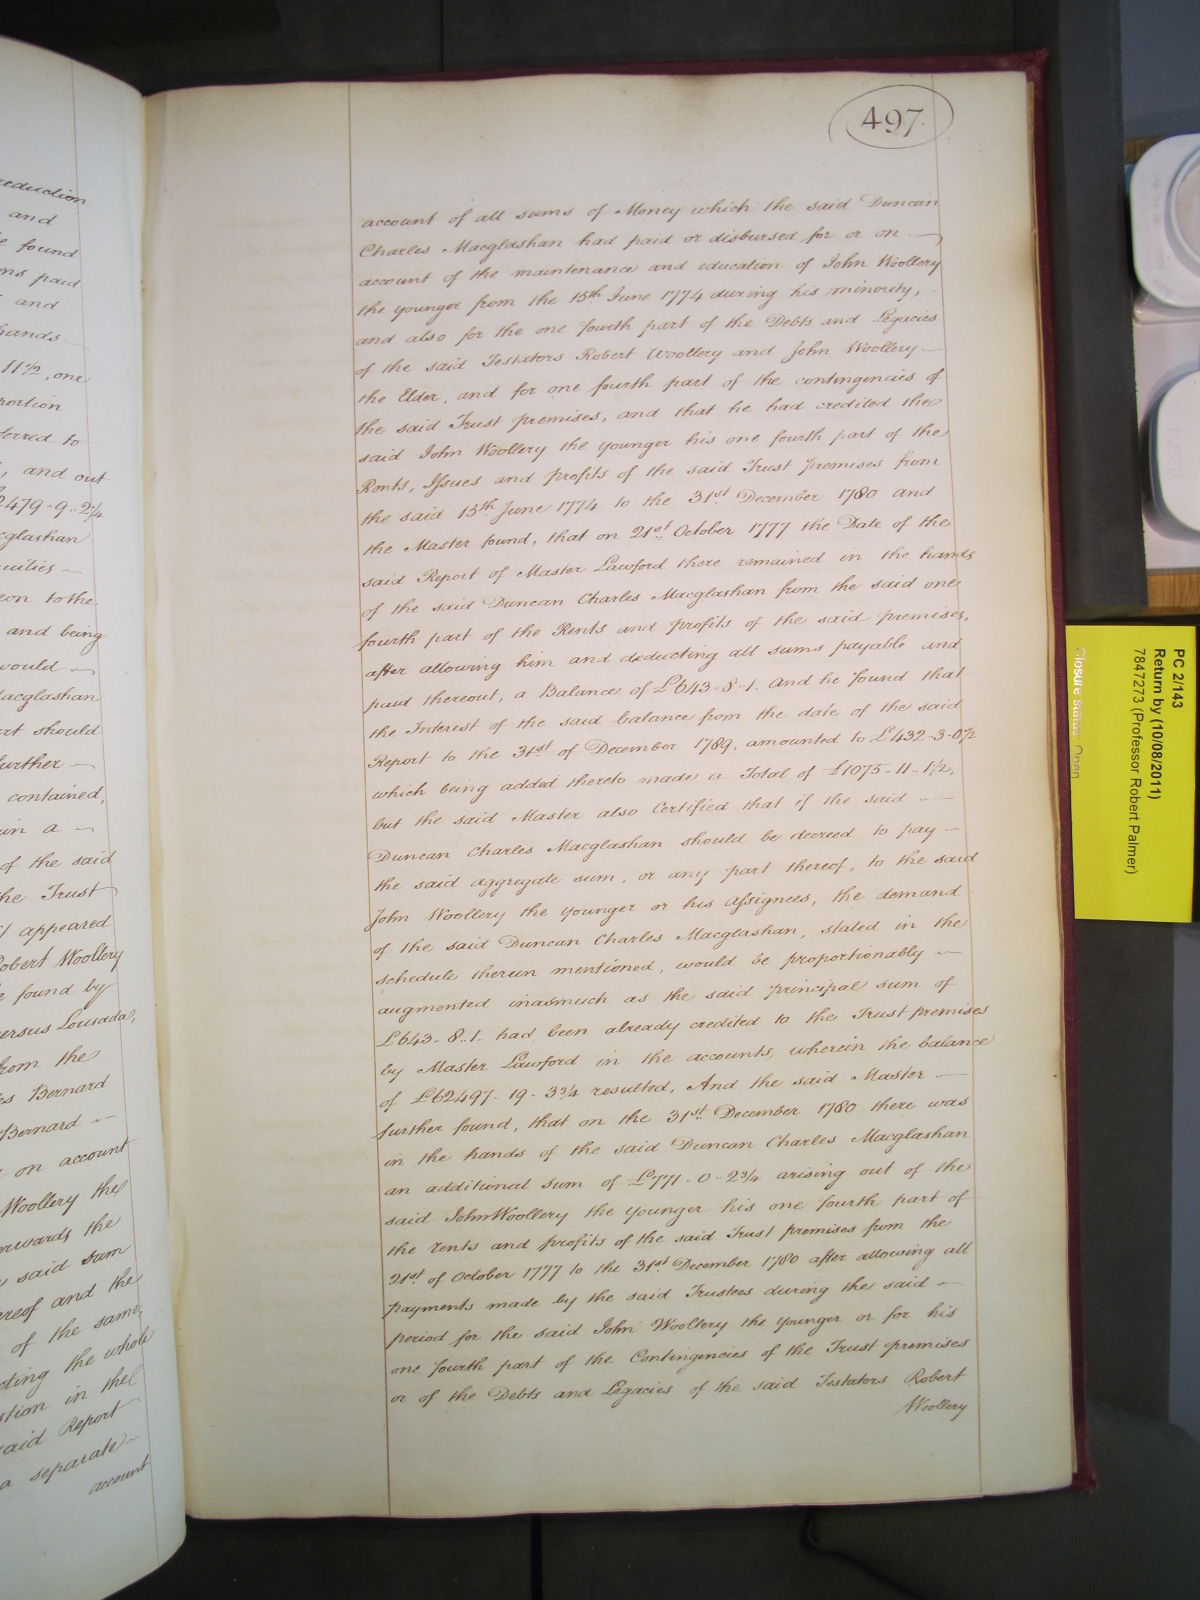 reduction
and
found
paid
and
hands
11 1/2, one
to
, and out
2479-9..2 1/4
to the
and being
would
Macglashan
should
further
contained,
in a
of the said
the Trust
appeared
Robert Woollery
found by
versus Lousada,
from the
Bernard
Bernard
on account
Woollery the
the
said sum
and the
of the same,
the whole
in the
said Report
a separate
account
497
account of all sums of Money which the said Duncan
Charles Macglashan had paid or disbursed for or on
account of the maintenance and education of John Woollery
the younger from the 15th June 1774 during his minority,
and also for the one fourth part of the Debts and Legacies
of the said Testators Robert Woollery and John Woollery
the Elder, and for one fourth part of the contingencies of
the said Trust premises, and that he had credited the
said John Woollery the younger his one fourth part of the
Rents, Issues and profits of the said Trust premises from
the said 15th June 1774 to the 31st December 1780 and
the Master found, that on 21st October 1777 the Date of the
said Report of Master Lawford there remained in the hands
of the said Duncan Charles Macglashan from the said one
fourth part of the Rents and profits of the said premises,
after allowing him and deducting all sums payable and
paid thereout, a Balance of £643-8-1. And he found that
the Interest of the said balance from the date of the said
Report to the 31st of December 1789, amounted to £432-3-0 1/2
which being added thereto made a Total of £1075-11-1 1/2,
but the said Master also Certified that if the said
Duncan Charles Macglashan should be decreed to pay
the said aggregate sum, or any part thereof, to the said
John Woollery the younger or his Assignees, the demand
of the said Duncan Charles Macglashan, stated in the
schedule therein mentioned, would be proportionably
augmented inasmuch as the said principal sum of
£643-8-1- had been already credited to the Trust premises
by Master Lawford in the accounts, wherein the balance
of £62497-19-3 3/4 resulted, And the said Master
further found, that on the 31st December 1780 there was
in the hands of the said Duncan Charles Macglashan
an additional sum of £771-0-2 3/4 arising out of the
said John Woollery the younger his one fourth part of
the rents and profits of the said Trust premises from the
21st of October 1777 to the 31st December 1780 after allowing all
payments made by the said Trustees during the said
period for the said John Woollery the younger or for his
one fourth part of the Contingencies of the Trust premises
or of the Debts and Legacies of the said Testators Robert
Woollery
PC 2/143
Return by (10/08/2011)
7847273 (Professor Robert Palmer)
Closure status: Open